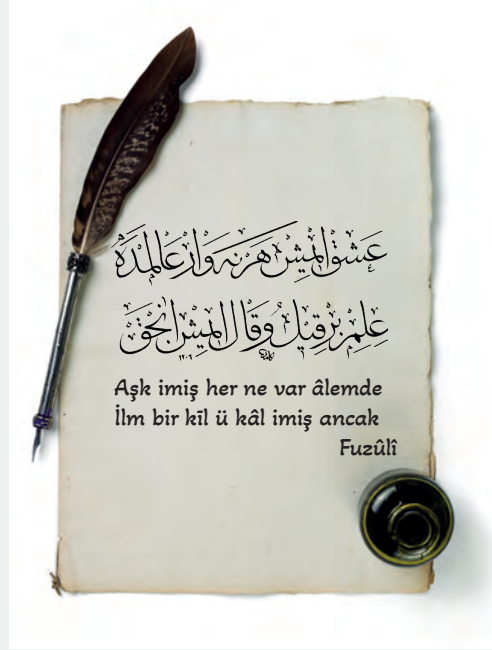 عشق ايمش هر نه وار عالمده
علم بر قيل و قال ايمش انجق
Aşk imiş her ne var âlemde
İlm bir kīl ü kâl imiş ancak
Fuzûlî